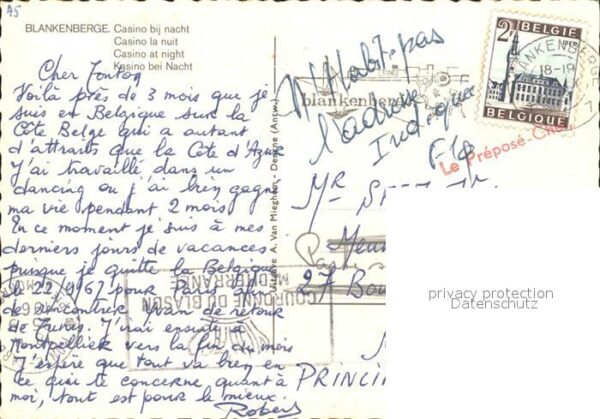 45
BLANKENBERGE. Casino bij nacht
Casino la nuit
Casino at night
Kasino bei Nacht
Cher Tonton
Voilà près de 3 mois que je
suis en Belgique sur la
Côte Belge qui a autant
d'attraits que la Côte d'Azur
J'ai travaillé dans un
dancing ou j'ai bien gagné
ma vie pendant 2 mois
En ce moment je suis à mes
derniers jours de vacances
puisque je quitte la Belgique
le 22/9/67 pour Paris afin
de rencontrer Yvan de retour
de Tunis. J'irai ensuite à
Montpellier vers la fin du mois
J'espère que tout va bien en
ce qui te concerne quant à
moi, tout est pour le mieux.
Robert
Uitgave A. Van Mieghem - Deurne (Antw.)
N'Habite pas
l'adresse
Indiquée
blankenberge
2F
BELGIE
BELGIQUE
BLANKENBERGE
18-19
Le Préposé-Chef
Mr
27 Bou
PRINCI
COURONNE DU BLASON
MEDITERRANEEN
privacy protection
Datenschutz